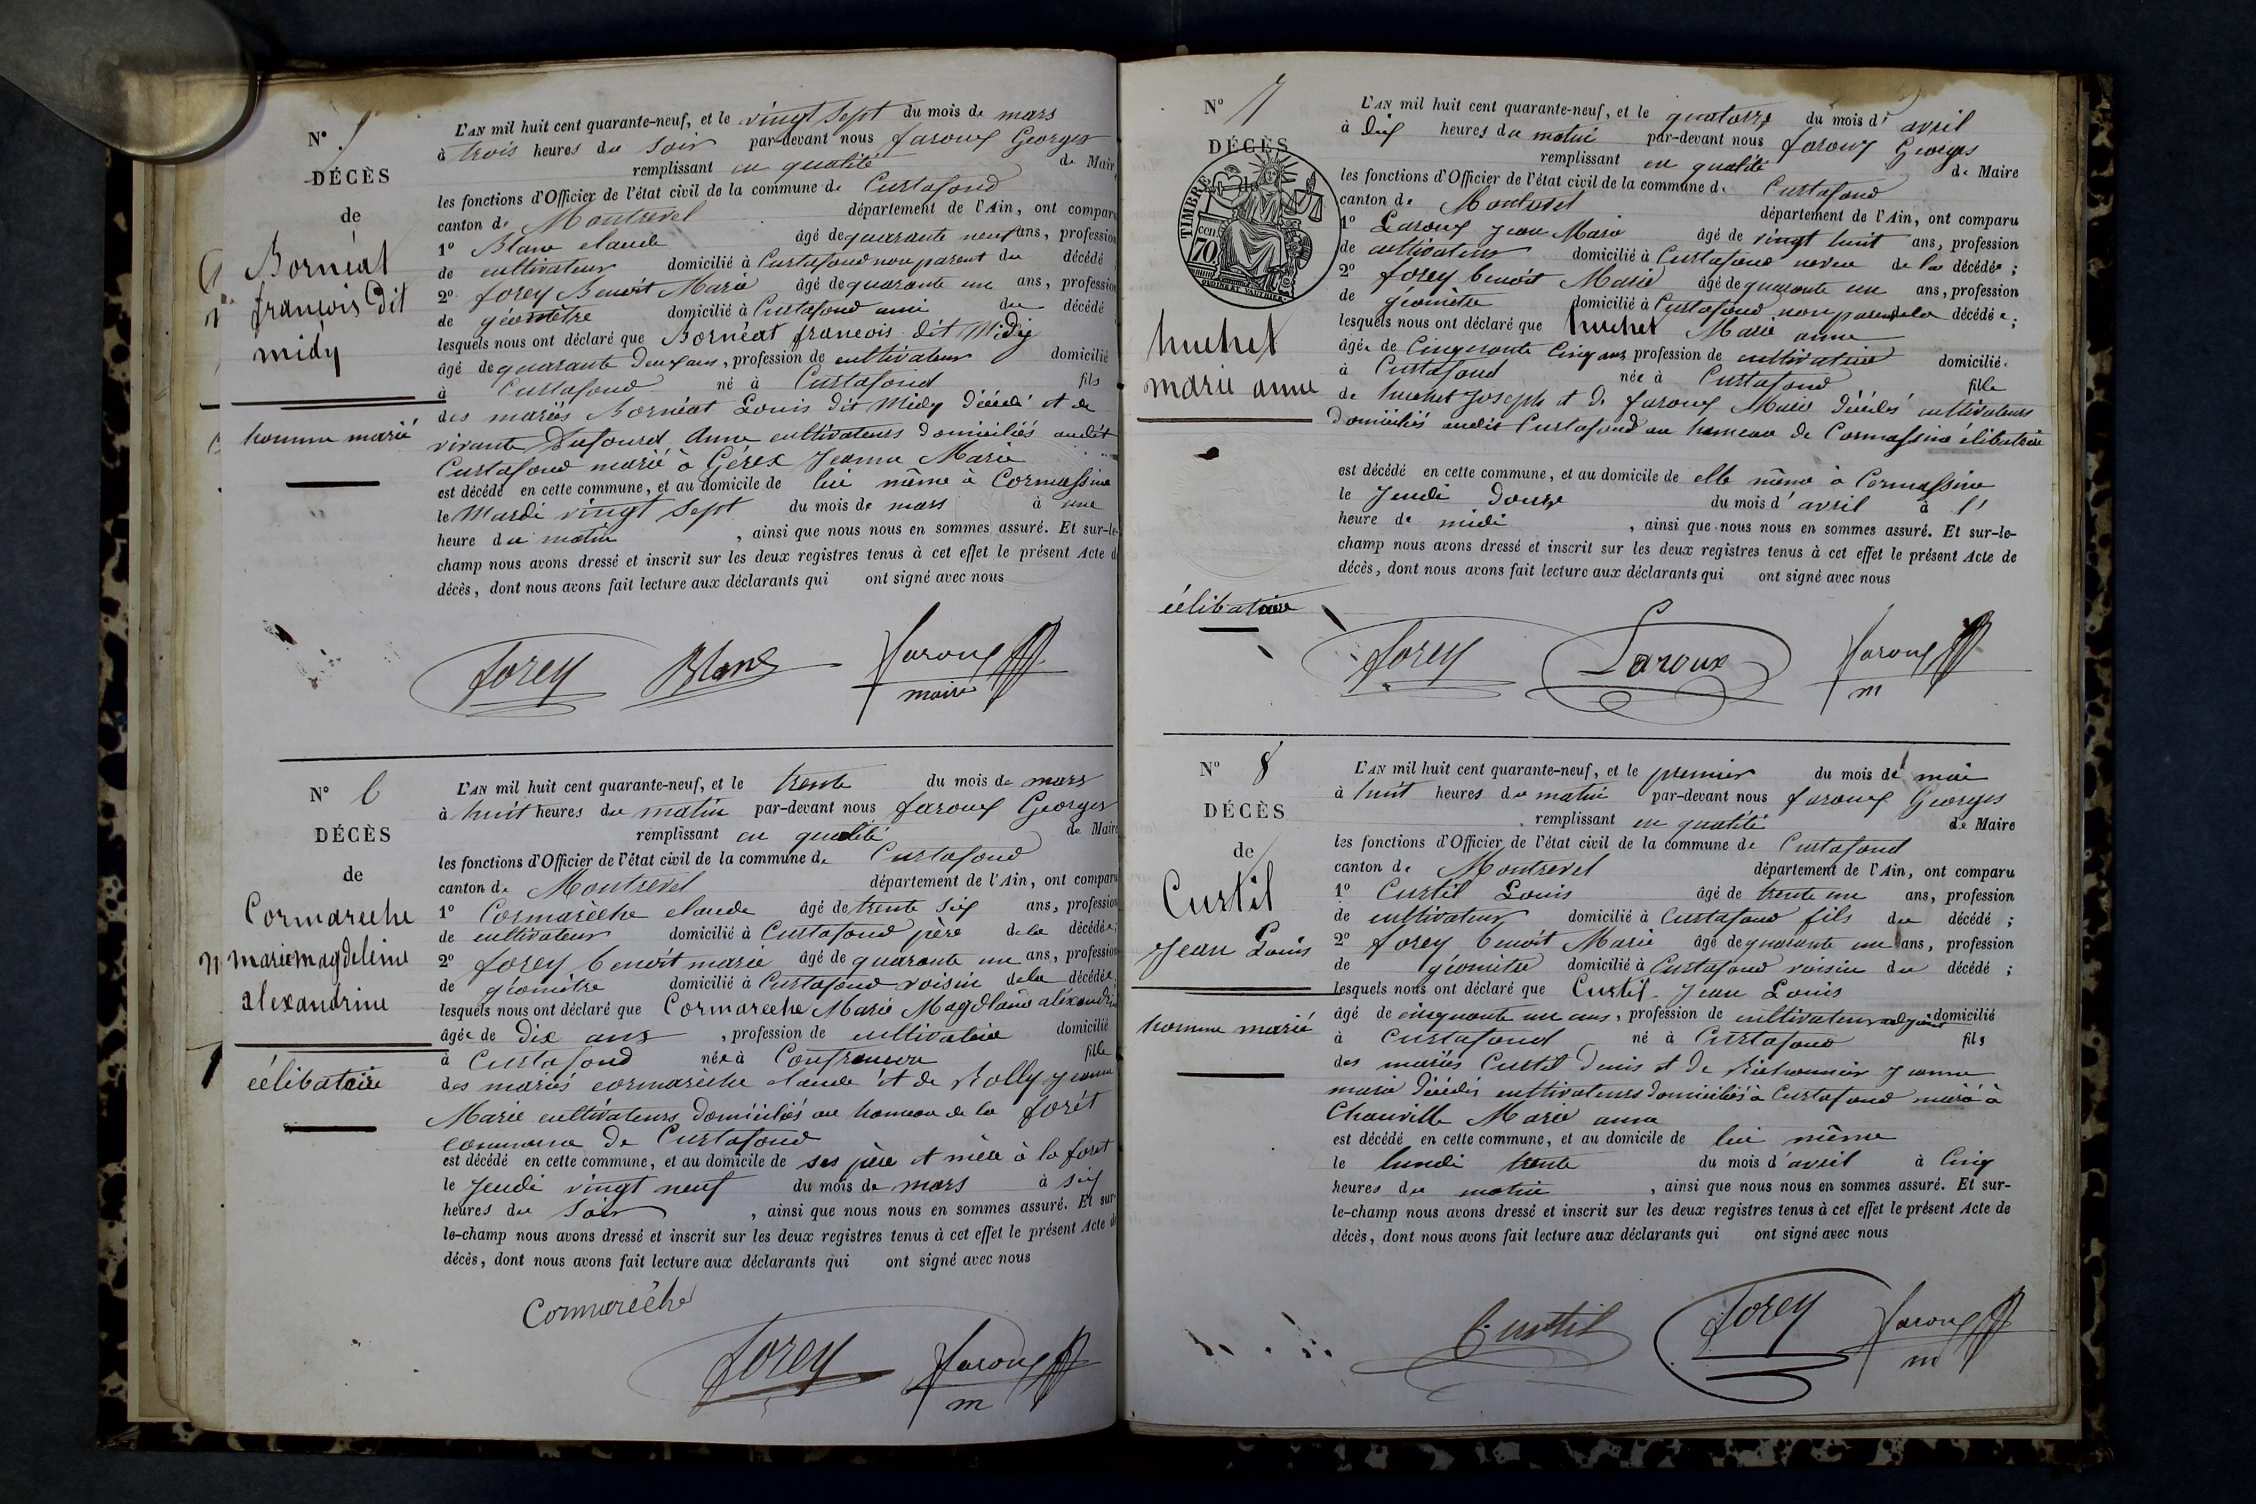 N° 5
DÉCÈS
de
Bornéat
françois dit
midy
homme marié
L'AN mil huit cent quarante-neuf, et le vingt sept du mois de mars
à trois heures du soir par-devant nous faroux Georges
remplissant en qualité de Maire
les fonctions d'Officier de l'état civil de la commune de Curtafond
canton de Montrevel département de l'Ain, ont comparu
1° Blanc claude âgé de quarante neuf ans, profession
de cultivateur domicilié à Curtafond non parent du décédé
2° forey Benoit Marie âgé de quarante un ans, profession
de géomètre domicilié à Curtafond ami du décédé
lesquels nous ont déclaré que Bornéat francois dit Midy
âgé de quarante deux ans, profession de cultivateur domicilié
à Curtafond né à Curtafond fils
des mariés Bornéat Louis dit Midy décédé et de
vivante Dufourd Anne cultivateurs domiciliés audit
Curtafond marié à Gérex Jeanne Marie
est décédé en cette commune, et au domicile de lui même à Cormassine
le Mardi vingt sept du mois de mars à une
heure du matin , ainsi que nous nous en sommes assuré. Et sur-le-
champ nous avons dressé et inscrit sur les deux registres tenus à cet effet le présent Acte de
décès, dont nous avons fait lecture aux déclarants qui ont signé avec nous
forey Blanc faroux
maire
N° 6
DÉCÈS
de
Cormareche
marie magdeleine
alexandrine
célibataire
L'AN mil huit cent quarante-neuf, et le trente du mois de mars
à huit heures du matin par-devant nous faroux Georges
remplissant en qualité de Maire
les fonctions d'Officier de l'état civil de la commune de Curtafond
canton de Montrevel département de l'Ain, ont comparu
1° Cormarèche claude âgé de trente six ans, profession
de cultivateur domicilié à Curtafond père de la décédée;
2° forey benoit marie âgé de quarante un ans, profession
de géomètre domicilié à Curtafond voisin de la décédée
lesquels nous ont déclaré que Cormareche Marie Magdlaine alexandrine
âgée de Dix ans , profession de cultivatrice domicilié
à Curtafond née à Confrançon fille
des mariés cormarèche claude et de Rolly Jeanne
Marie cultivateurs domiciliés au hameau de la forêt
commune de Curtafond
est décédé en cette commune, et au domicile de ses père et mère à la forêt
le Jeudi vingt neuf du mois de mars à six
heures du soir , ainsi que nous nous en sommes assuré. Et sur-
le-champ nous avons dressé et inscrit sur les deux registres tenus à cet effet le présent Acte de
décès, dont nous avons fait lecture aux déclarants qui ont signé avec nous
Cormarèche
forey faroux
m
N° 7
DÉCÈS
de
TIMBRE
70
huchet
marie anne
célibataire
L'AN mil huit cent quarante-neuf, et le quatorze du mois d' avril
à dix heures du matin par-devant nous faroux Georges
remplissant en qualité de Maire
les fonctions d'Officier de l'état civil de la commune de Curtafond
canton de Montrevel département de l'Ain, ont comparu
1° Laroux Jean Marie âgé de vingt huit ans, profession
de cultivateur domicilié à Curtafond neveu de la décédée ;
2° forey benoit Marie âgé de quarante un ans, profession
de géomètre domicilié à Curtafond non parent de la décédée ;
lesquels nous ont déclaré que huchet Marie anne
âgée de Cinquante Cinq ans profession de cultivatrice domicilié
à Curtafond née à Curtafond fille
de huchet Joseph et de faroux Marie décédés cultivateurs
domiciliés audit Curtafond au hameau de Cormassine célibataire
est décédé en cette commune, et au domicile de elle même à Cormassine
le Jeudi douze du mois d' avril à l'
heure de midi , ainsi que nous nous en sommes assuré. Et sur-le-
champ nous avons dressé et inscrit sur les deux registres tenus à cet effet le présent Acte de
décès, dont nous avons fait lecture aux déclarants qui ont signé avec nous
forey Laroux faroux
m
N° 8
DÉCÈS
de
Curtil
Jean Louis
homme marié
L'AN mil huit cent quarante-neuf, et le premier du mois de mai
à huit heures du matin par-devant nous faroux Georges
remplissant en qualité de Maire
les fonctions d'Officier de l'état civil de la commune de Curtafond
canton de Montrevel département de l'Ain, ont comparu
1° Curtil Louis âgé de trente un ans, profession
de cultivateur domicilié à Curtafond fils du décédé ;
2° forey benoit Marie âgé de quarante un ans, profession
de géomètre domicilié à Curtafond voisin du décédé ;
lesquels nous ont déclaré que Curtil Jean Louis
âgé de cinquante un ans, profession de cultivateur adjoint domicilié
à Curtafond né à Curtafond fils
des mariés Curtil Denis et de Richonnier Jeanne
marie décédés cultivateurs domiciliés à Curtafond marié à
Chanville Marie anne
est décédé en cette commune, et au domicile de lui même
le lundi trente du mois d'avril à Cinq
heures du matin , ainsi que nous nous en sommes assuré. Et sur-
le-champ nous avons dressé et inscrit sur les deux registres tenus à cet effet le présent Acte de
décès, dont nous avons fait lecture aux déclarants qui ont signé avec nous
Curtil forey faroux
m